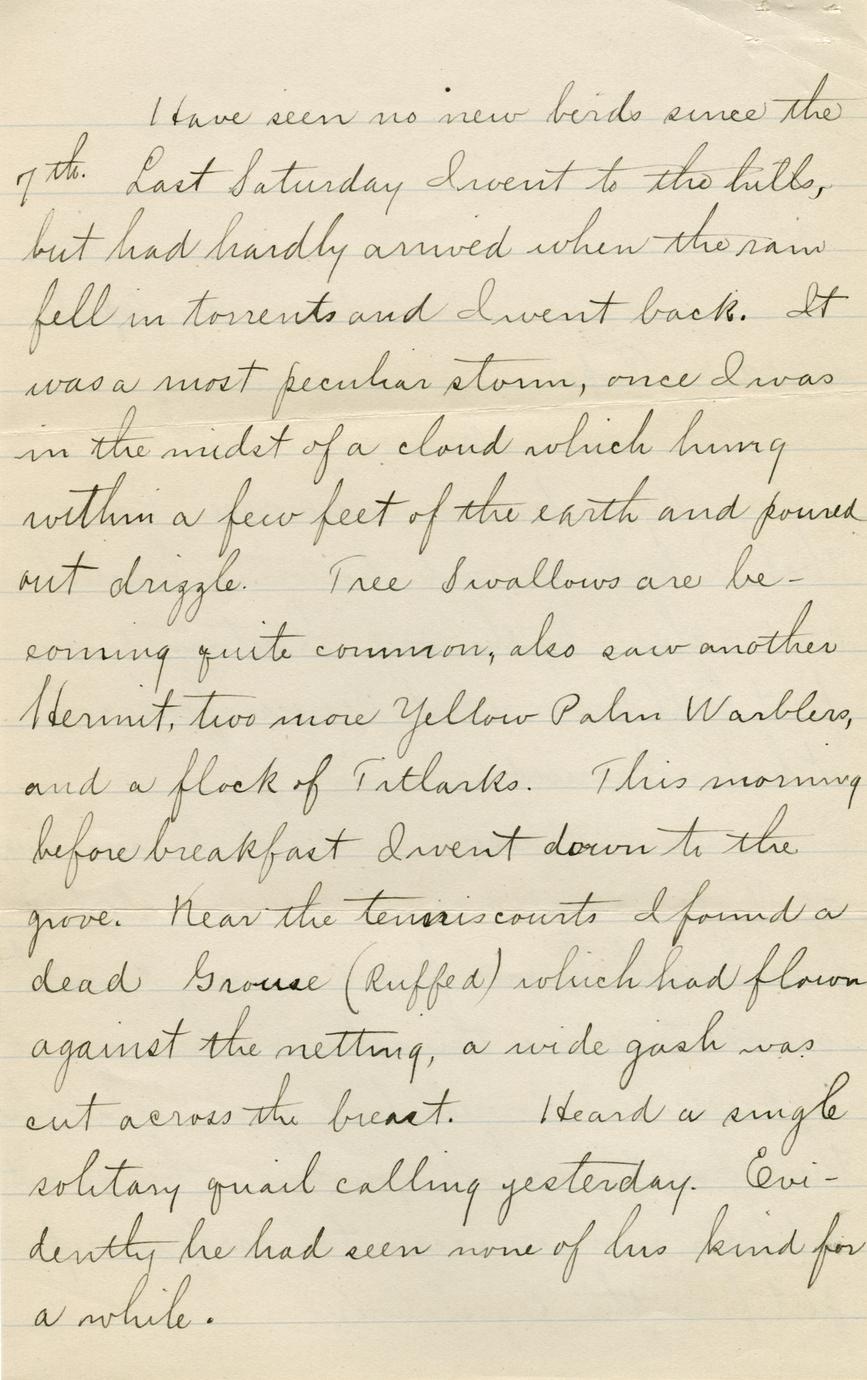 Have seen no new birds since the
7th. Last Saturday I went to the hills,
but had hardly arrived when the rain
fell in torrents and I went back. It
was a most peculiar storm, once I was
in the midst of a cloud which hung
within a few feet of the earth and poured
out drizzle. Tree Swallows are be-
coming quite common, also saw another
Hermit, two more Yellow Palm Warblers,
and a flock of Titlarks. This morning
before breakfast I went down to the
grove. Near the tennis courts I found a
dead Grouse (Ruffed) which had flown
against the netting, a wide gash was
cut across the breast. Heard a single
solitary quail calling yesterday. Evi-
dently he had seen none of his kind for
a while.